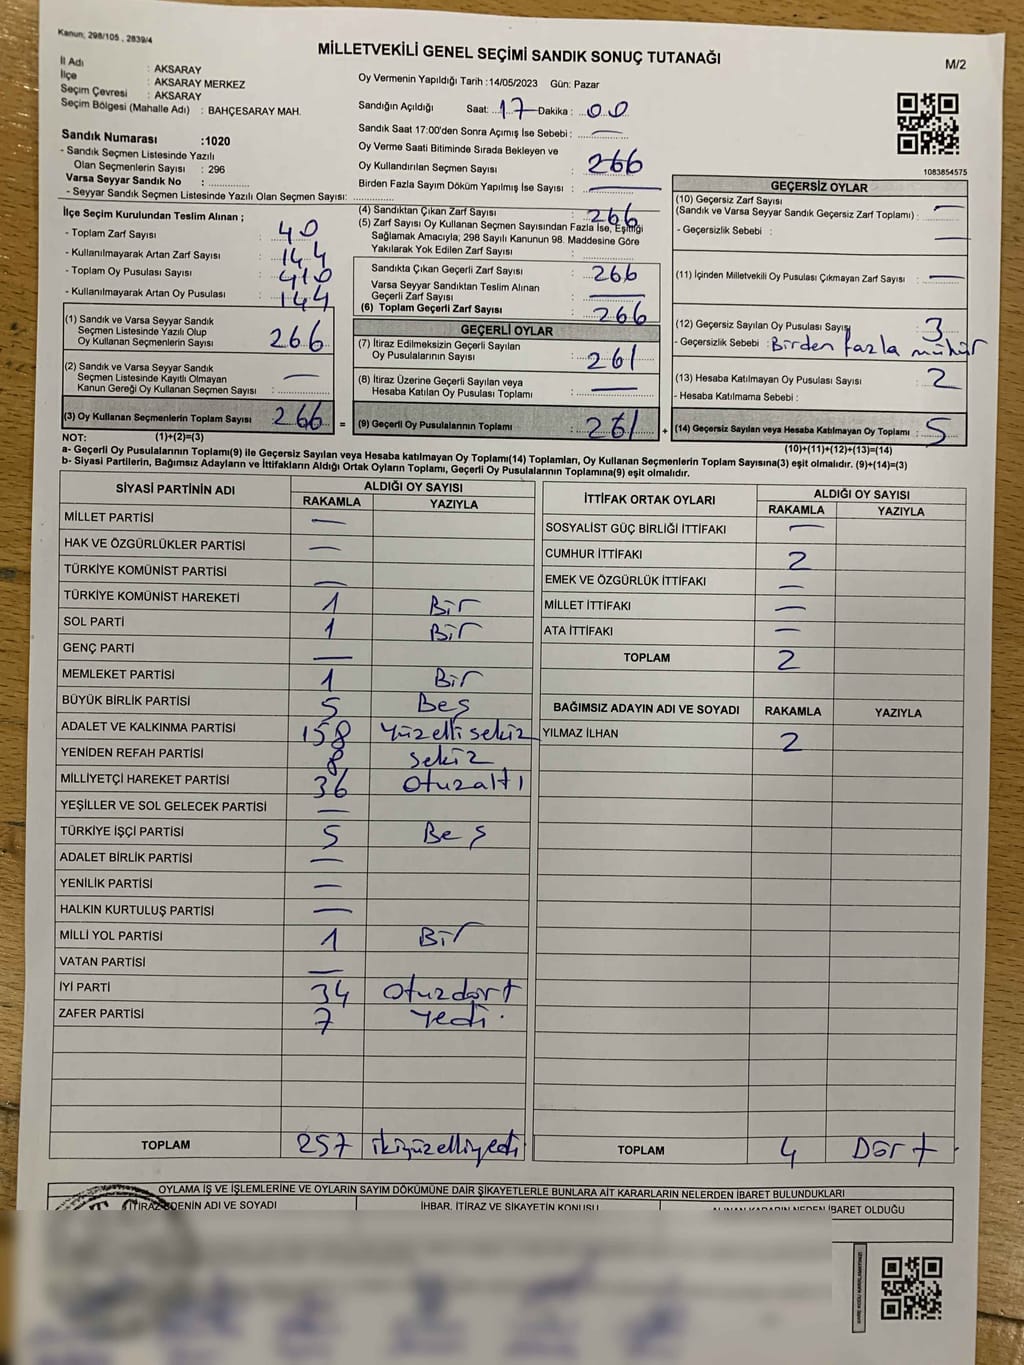 Kanun; 298/105 , 2839/4
MİLLETVEKİLİ GENEL SEÇİMİ SANDIK SONUÇ TUTANAĞI
M/2
İl Adı : AKSARAY
İlçe : AKSARAY MERKEZ
Seçim Çevresi : AKSARAY
Seçim Bölgesi (Mahalle Adı) : BAHÇESARAY MAH.
Oy Vermenin Yapıldığı Tarih :14/05/2023 Gün: Pazar
Sandığın Açıldığı Saat: 17 Dakika : 00
Sandık Saat 17:00'den Sonra Açımış İse Sebebi : —
Oy Verme Saati Bitiminde Sırada Bekleyen ve
Oy Kullandırılan Seçmen Sayısı : 266
Birden Fazla Sayım Döküm Yapılmış İse Sayısı : —
Sandık Numarası :1020
- Sandık Seçmen Listesinde Yazılı
Olan Seçmenlerin Sayısı : 296
Varsa Seyyar Sandık No :
- Seyyar Sandık Seçmen Listesinde Yazılı Olan Seçmen Sayısı:
1083854575
İlçe Seçim Kurulundan Teslim Alınan ;
- Toplam Zarf Sayısı :
- Kullanılmayarak Artan Zarf Sayısı : 144
- Toplam Oy Pusulası Sayısı : 410
- Kullanılmayarak Artan Oy Pusulası : 144
(1) Sandık ve Varsa Seyyar Sandık
Seçmen Listesinde Yazılı Olup
Oy Kullanan Seçmenlerin Sayısı : 266
(2) Sandık ve Varsa Seyyar Sandık
Seçmen Listesinde Kayıtlı Olmayan
Kanun Gereği Oy Kullanan Seçmen Sayısı : —
(3) Oy Kullanan Seçmenlerin Toplam Sayısı : 266 =
(4) Sandıktan Çıkan Zarf Sayısı : 266
(5) Zarf Sayısı Oy Kullanan Seçmen Sayısından Fazla İse, Eşitliği
Sağlamak Amacıyla; 298 Sayılı Kanunun 98. Maddesine Göre
Yakılarak Yok Edilen Zarf Sayısı :
Sandıkta Çıkan Geçerli Zarf Sayısı : 266
Varsa Seyyar Sandıktan Teslim Alınan
Geçerli Zarf Sayısı : —
(6) Toplam Geçerli Zarf Sayısı : 266
GEÇERLİ OYLAR
(7) İtiraz Edilmeksizin Geçerli Sayılan
Oy Pusulalarının Sayısı : 261
(8) İtiraz Üzerine Geçerli Sayılan veya
Hesaba Katılan Oy Pusulası Toplamı : —
(9) Geçerli Oy Pusulalarının Toplamı : 261 +
GEÇERSİZ OYLAR
(10) Geçersiz Zarf Sayısı
(Sandık ve Varsa Seyyar Sandık Geçersiz Zarf Toplamı) : —
- Geçersizlik Sebebi : —
(11) İçinden Milletvekili Oy Pusulası Çıkmayan Zarf Sayısı : —
(12) Geçersiz Sayılan Oy Pusulası Sayısı : 3
- Geçersizlik Sebebi : Birden fazla mühür
(13) Hesaba Katılmayan Oy Pusulası Sayısı : 2
- Hesaba Katılmama Sebebi :
(14) Geçersiz Sayılan veya Hesaba Katılmayan Oy Toplamı : 5
NOT: (1)+(2)=(3)
(10)+(11)+(12)+(13)=(14)
a- Geçerli Oy Pusulalarının Toplamı(9) ile Geçersiz Sayılan veya Hesaba katılmayan Oy Toplamı(14) Toplamları, Oy Kullanan Seçmenlerin Toplam Sayısına(3) eşit olmalıdır. (9)+(14)=(3)
b- Siyasi Partilerin, Bağımsız Adayların ve İttifakların Aldığı Ortak Oyların Toplamı, Geçerli Oy Pusulalarının Toplamına(9) eşit olmalıdır.
SİYASİ PARTİNİN ADI ALDIĞI OY SAYISI
RAKAMLA YAZIYLA
MİLLET PARTİSİ —
HAK VE ÖZGÜRLÜKLER PARTİSİ —
TÜRKİYE KOMÜNİST PARTİSİ —
TÜRKİYE KOMÜNİST HAREKETİ 1 Bir
SOL PARTİ 1 Bir
GENÇ PARTİ —
MEMLEKET PARTİSİ 1 Bir
BÜYÜK BİRLİK PARTİSİ 5 Beş
ADALET VE KALKINMA PARTİSİ 158 Yüzellisekiz
YENİDEN REFAH PARTİSİ 8 sekiz
MİLLİYETÇİ HAREKET PARTİSİ 36 Otuzaltı
YEŞİLLER VE SOL GELECEK PARTİSİ —
TÜRKİYE İŞÇİ PARTİSİ 5 Beş
ADALET BİRLİK PARTİSİ —
YENİLİK PARTİSİ —
HALKIN KURTULUŞ PARTİSİ —
MİLLİ YOL PARTİSİ 1 Bir
VATAN PARTİSİ —
İYİ PARTİ 34 Otuzdört
ZAFER PARTİSİ 7 Yedi.
TOPLAM 257 ikiyüzelliyedi
İTTİFAK ORTAK OYLARI ALDIĞI OY SAYISI
RAKAMLA YAZIYLA
SOSYALİST GÜÇ BİRLİĞİ İTTİFAKI —
CUMHUR İTTİFAKI 2
EMEK VE ÖZGÜRLÜK İTTİFAKI —
MİLLET İTTİFAKI —
ATA İTTİFAKI —
TOPLAM 2
BAĞIMSIZ ADAYIN ADI VE SOYADI RAKAMLA YAZIYLA
YILMAZ İLHAN 2
TOPLAM 4 Dört
OYLAMA İŞ VE İŞLEMLERİNE VE OYLARIN SAYIM DÖKÜMÜNE DAİR ŞİKAYETLERLE BUNLARA AİT KARARLARIN NELERDEN İBARET BULUNDUKLARI
ADI VE SOYADI
İHBAR, İTİRAZ VE ŞİKAYETİN KONUSU
İBARET OLDUĞU